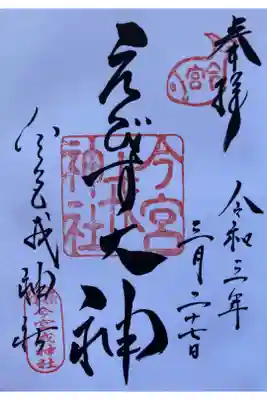 奉拝
令和三年
三月二十七日
えびす大神
今宮
神社
今宮戎神社
今宮戎神社